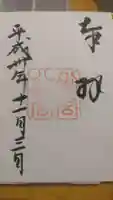 奉拝
平成卅年十一月三日